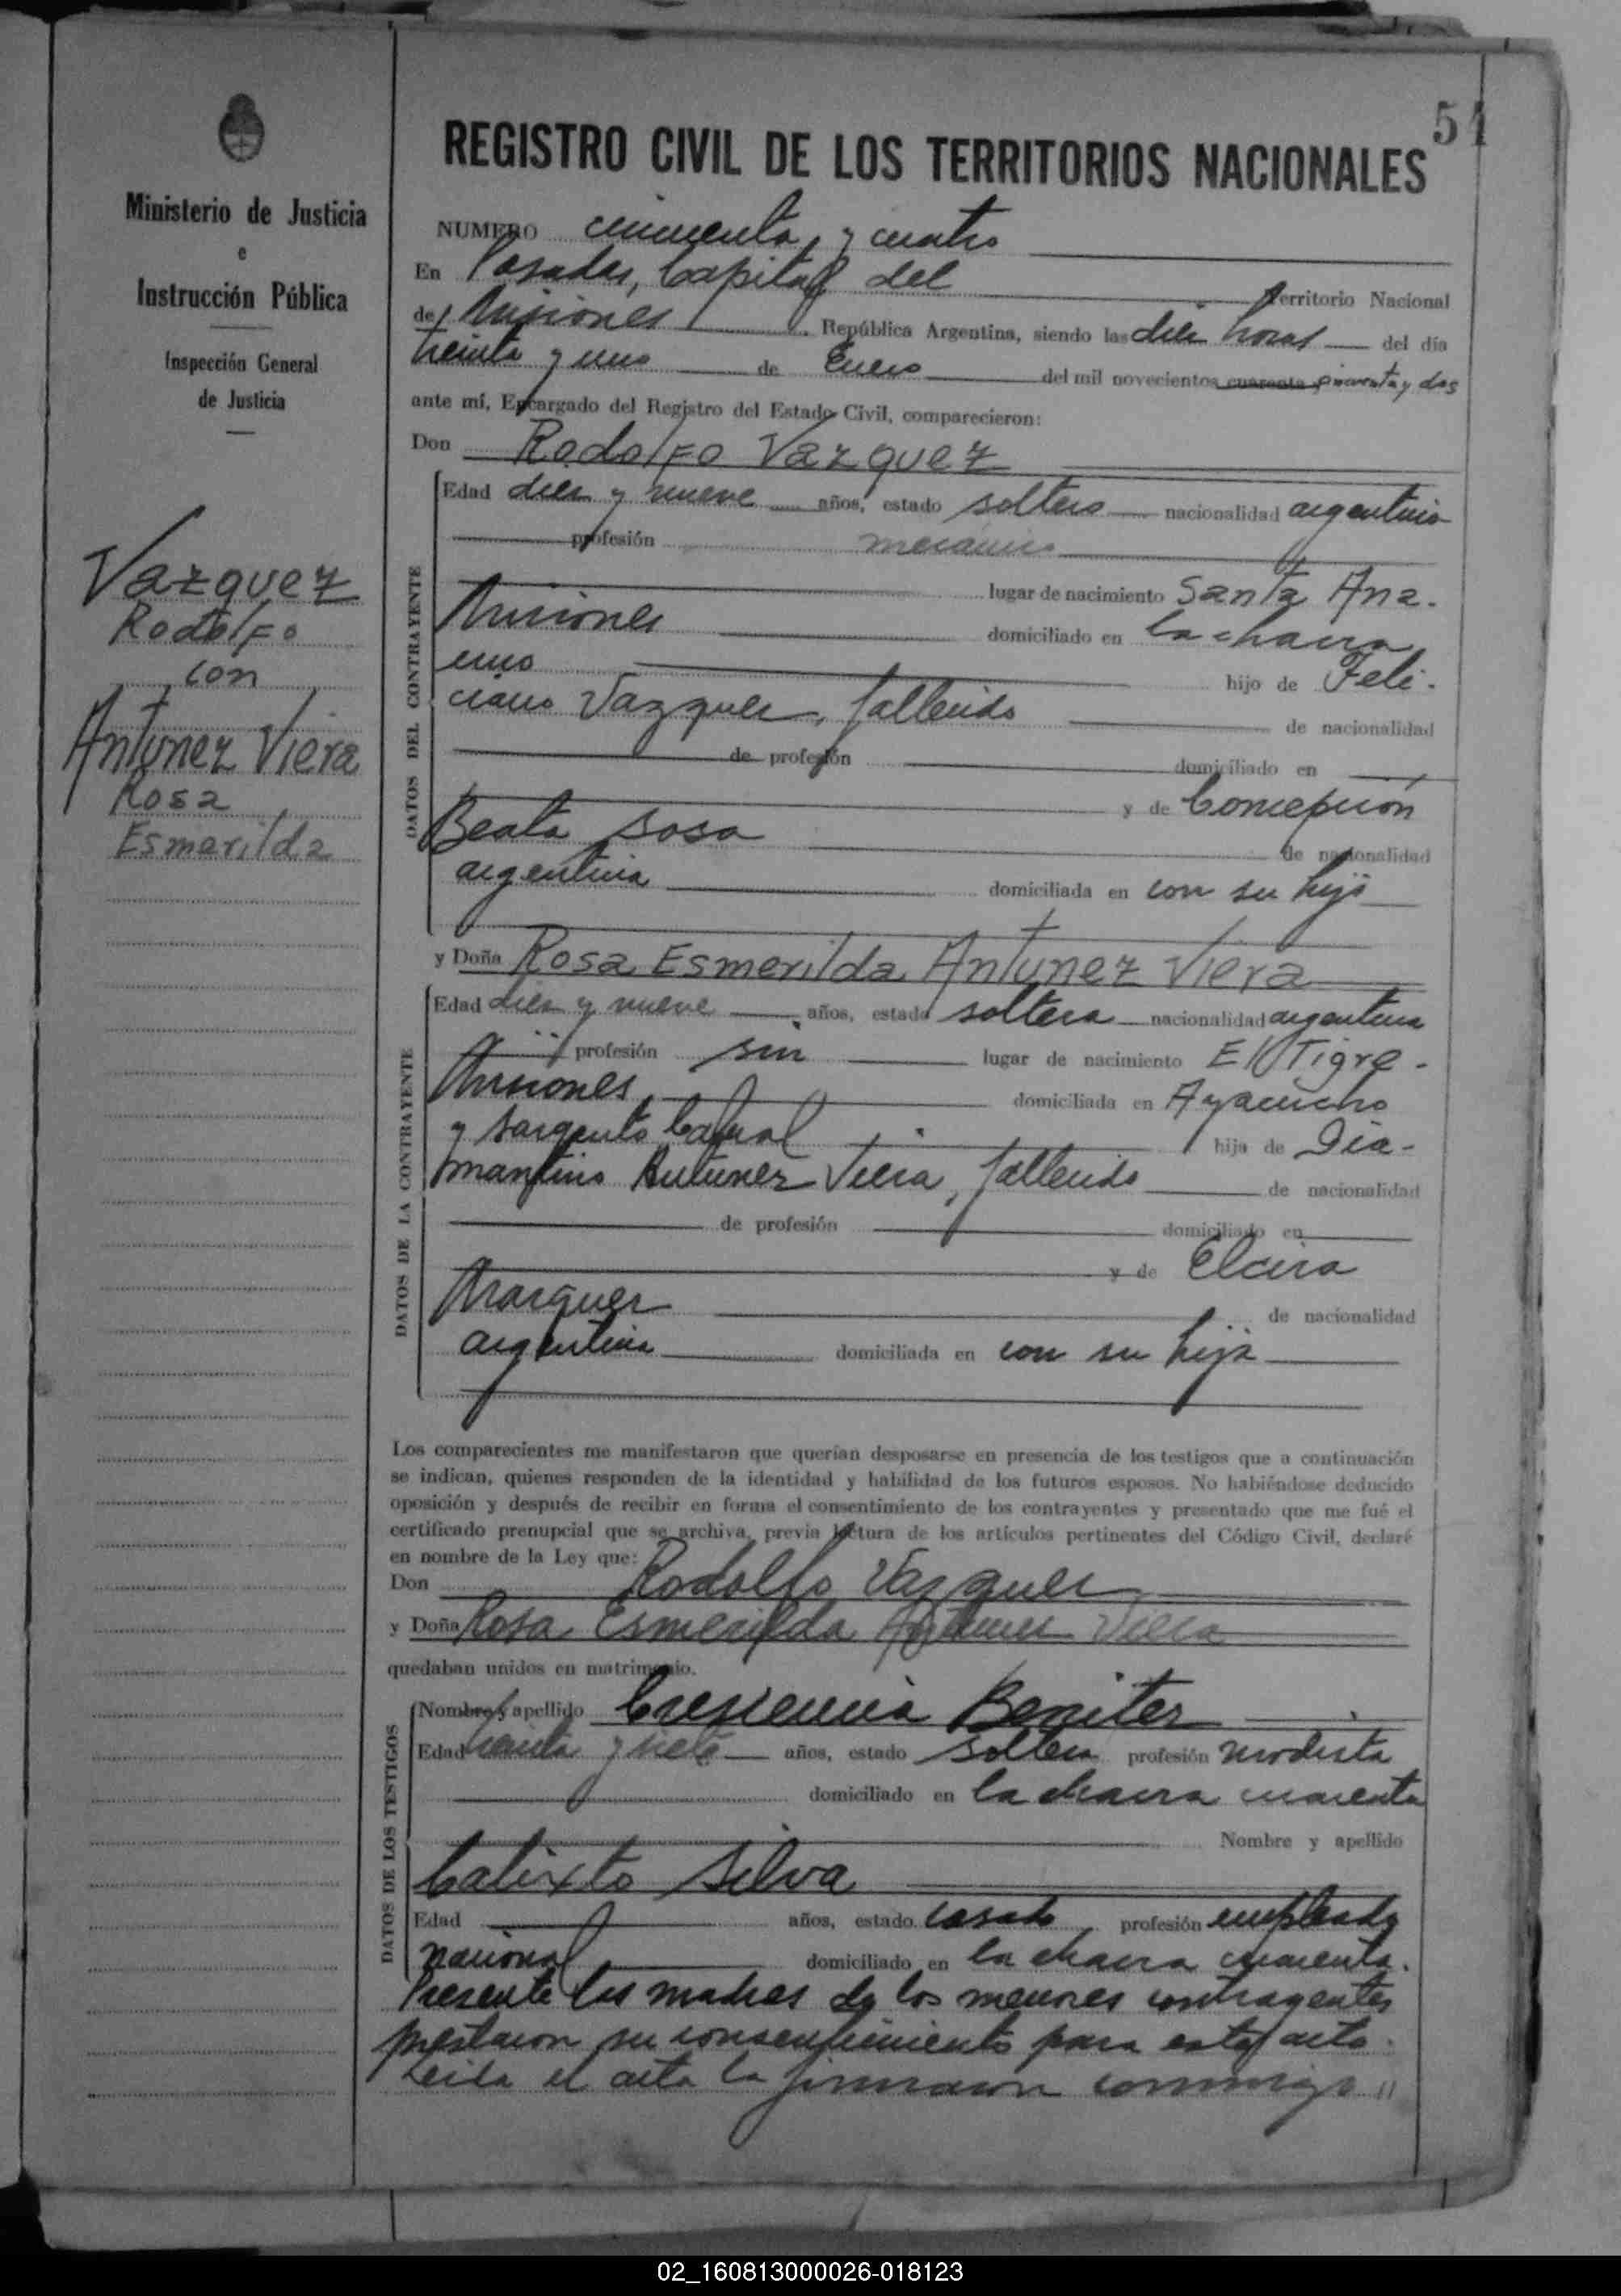 54
REGISTRO CIVIL DE LOS TERRITORIOS NACIONALES
Ministerio de Justicia
e
Instrucción Pública
Inspección General
de Justicia
Vazquez
Rodolfo
con
Antunez Viera
Rosa
Esmerilda
NUMERO cincuenta y cuatro
En Posadas, Capital del Territorio Nacional
de Misiones República Argentina, siendo las diez horas del día
treinta y uno de Enero del mil novecientos cuarenta cincuenta y dos
ante mí, Encargado del Registro del Estado Civil, comparecieron:
Don Rodolfo Vazquez
DATOS DEL CONTRAYENTE
Edad diez y nueve años, estado soltero nacionalidad argentino
profesión mecanico
lugar de nacimiento Santa Ana.
Misiones domiciliado en la chacra
uno hijo de Feli-
ciano Vazquez, fallecido de nacionalidad
de profesión domiciliado en
y de Concepción
Beata Sosa de nacionalidad
argentina domiciliada en con su hijo
y Doña Rosa Esmerilda Antunez Viera
DATOS DE LA CONTRAYENTE
Edad diez y nueve años, estado soltera nacionalidad argentina
profesión sin lugar de nacimiento El Tigre -
Misiones domiciliada en Ayacucho
y Sargento Cabral hija de Dia-
mantino Antunez Viera, fallecido de nacionalidad
de profesión domiciliado en
y de Elcira
Marquez de nacionalidad
argentina domiciliada en con su hija
Los comparecientes me manifestaron que querían desposarse en presencia de los testigos que a continuación
se indican, quienes responden de la identidad y habilidad de los futuros esposos. No habiéndose deducido
oposición y después de recibir en forma el consentimiento de los contrayentes y presentado que me fué el
certificado prenupcial que se archiva, previa lectura de los artículos pertinentes del Código Civil, declaré
en nombre de la Ley que:
Don Rodolfo Vazquez
y Doña Rosa Esmerilda Antunez Viera
quedaban unidos en matrimonio.
DATOS DE LOS TESTIGOS
Nombre y apellido Crescencia Benitez
Edad treinta y siete años, estado soltera profesión modista
domiciliado en la chacra cuarenta
Nombre y apellido
Calixto Silva
Edad años, estado casado profesión empleado
nacional domiciliado en la chacra cuarenta.
Presente las madres de los menores contrayentes
prestaron su consentimiento para este acto.
Leida el acta la firmaron conmigo
02_160813000026-018123